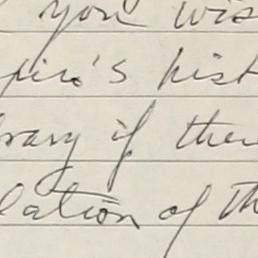 you wis
piro's hist
brary if there
lation of th